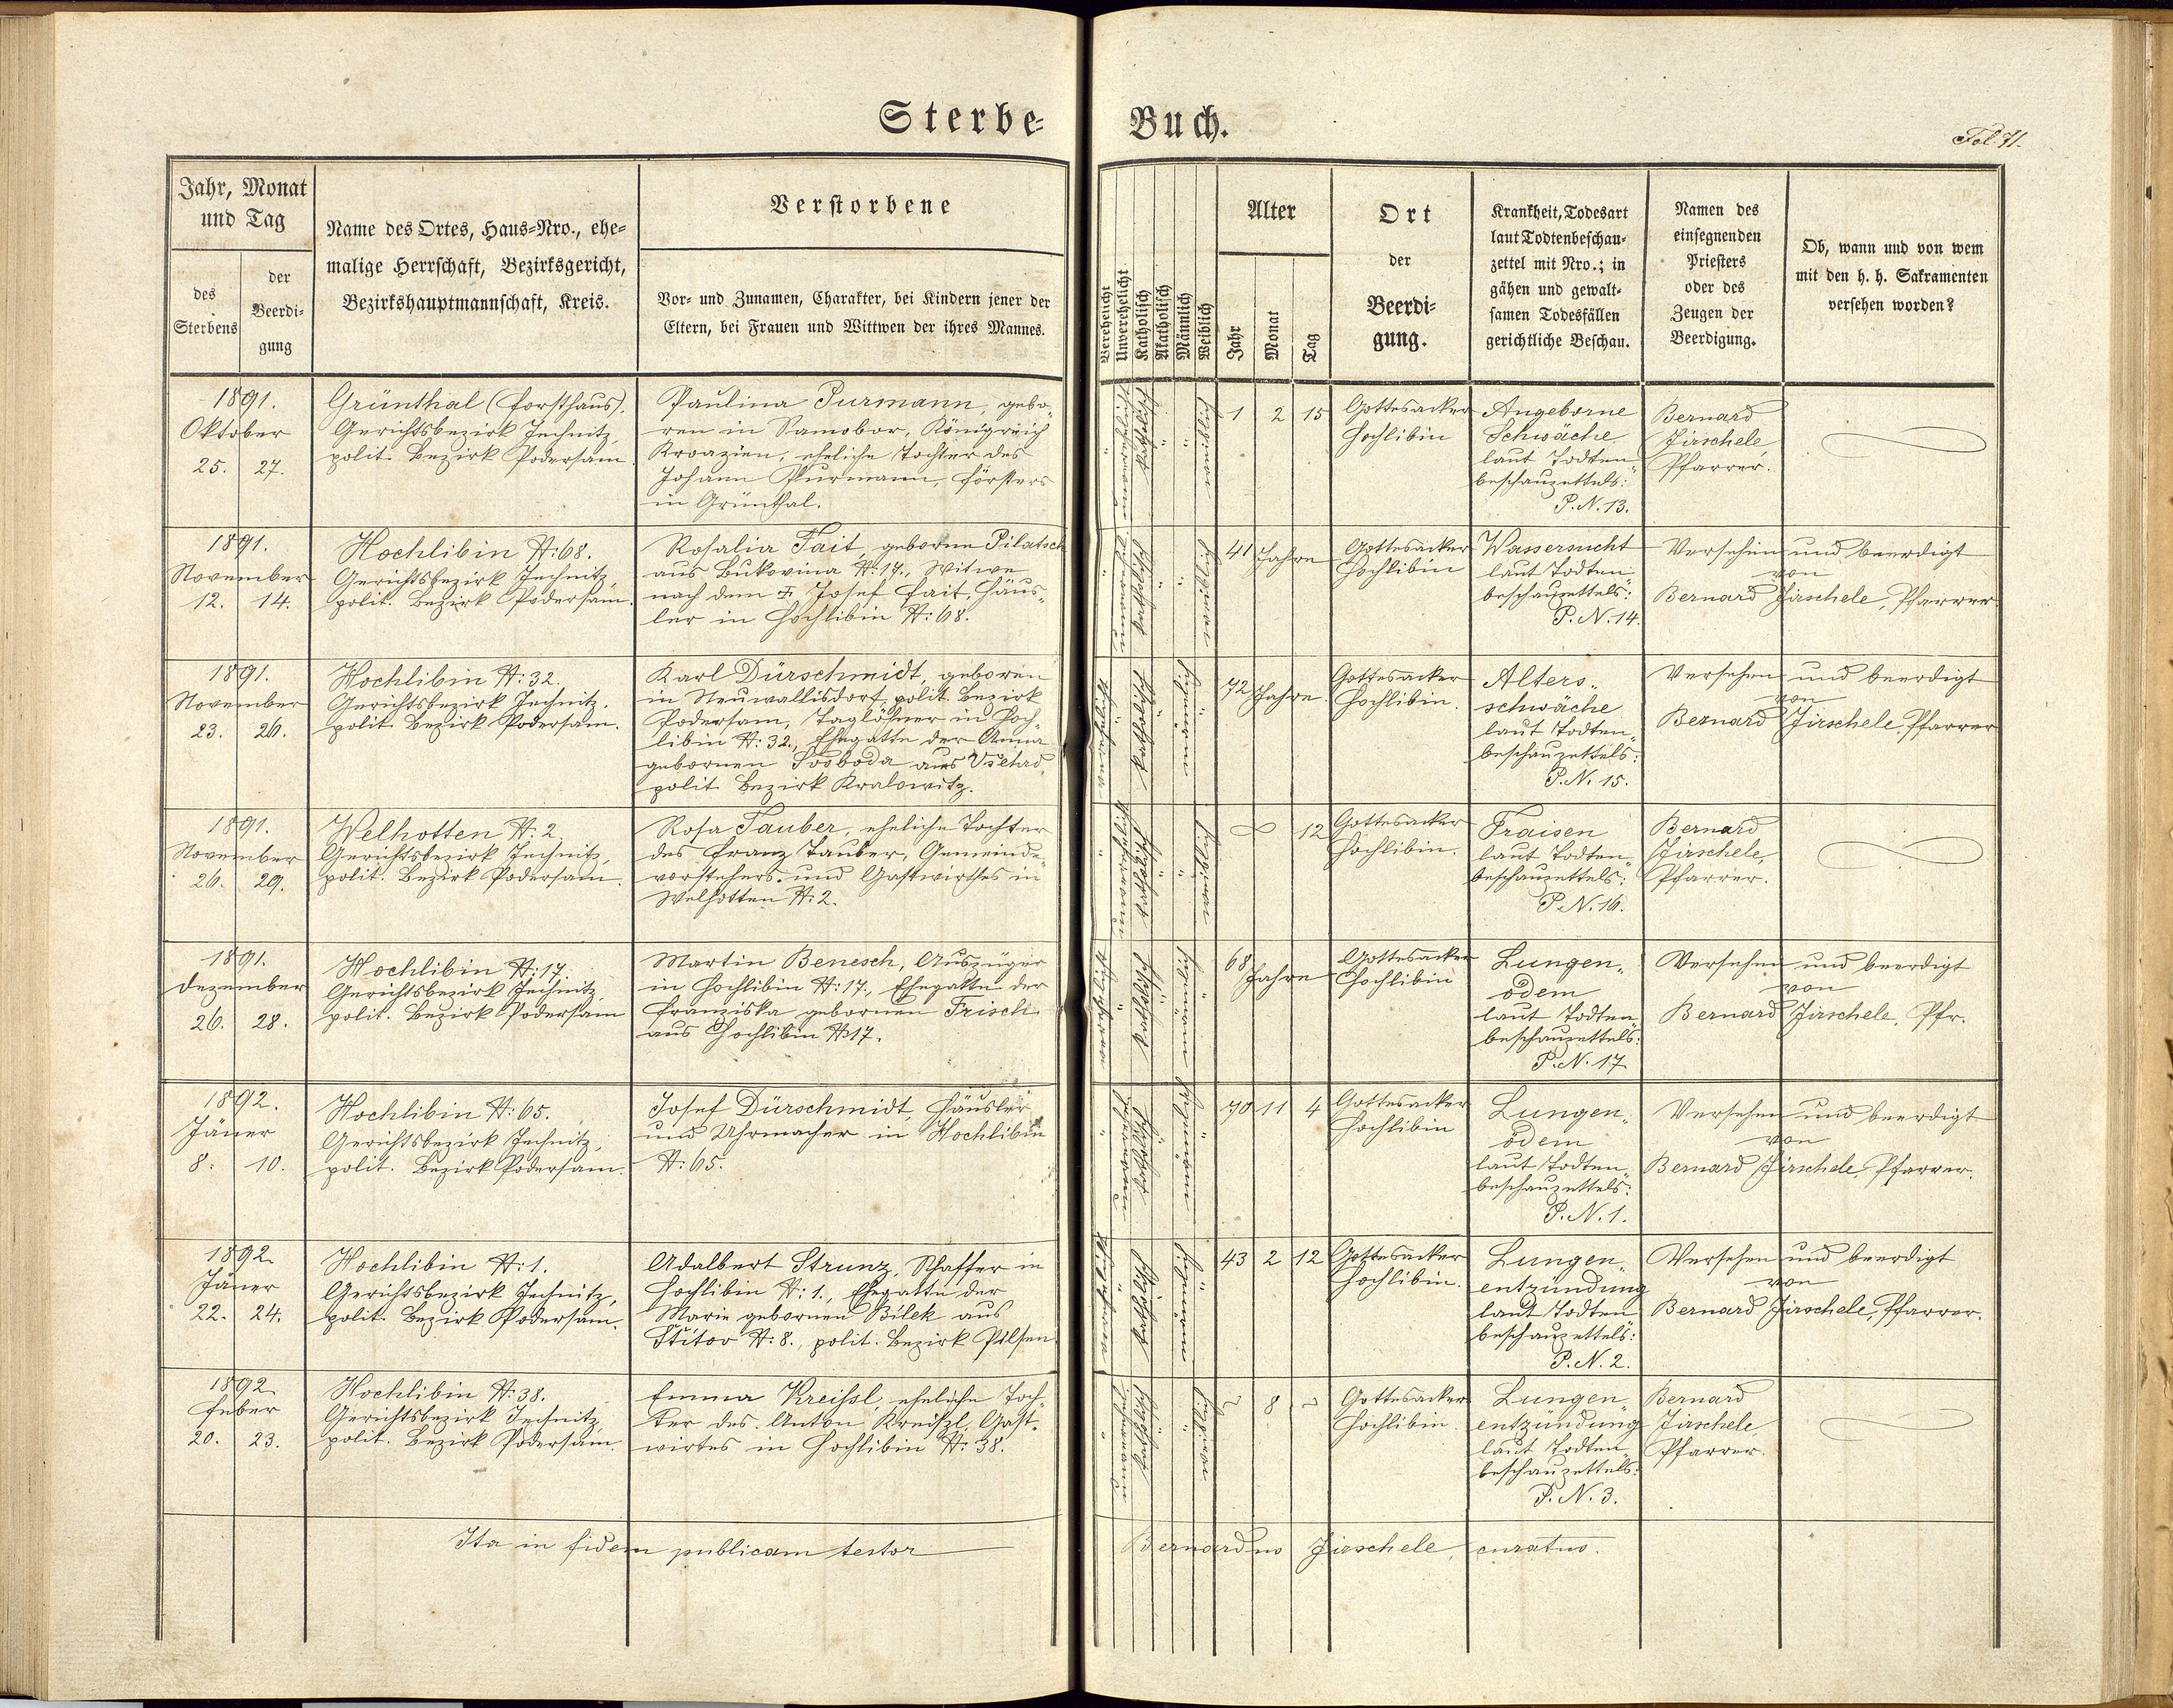 Sterbe- Buch.
Fol. 71.
Jahr, Monat und Tag
des Sterbens
der Beerdi-gung
Name des Ortes, Haus-Nro., ehe-
malige Herrschaft, Bezirksgericht,
Bezirkshauptmannschaft, Kreis.
Verstorbene
Vor- und Zunamen, Charakter, bei Kindern jener der
Eltern, bei Frauen und Wittwen der ihres Mannes.
Verehelicht
Unverehelicht
Katholisch
Akatholisch
Männlich
Weiblich
Alter
Jahr
Monat
Tag
Ort
der
Beerdi-
gung.
Krankheit, Todesart
laut Todtenbeschau-
zettel mit Nro.; in
gähen und gewalt-
samen Todesfällen
gerichtliche Beschau.
Namen des
einsegnenden
Priesters
oder des
Zeugen der
Beerdigung.
Ob, wann und von wem
mit den h. h. Sakramenten
versehen worden?
1891.
Oktober
25. 27.
Grünthal (Forsthaus).
Gerichtsbezirk Jechnitz,
polit. Bezirk Podersam.
Paulina Purmann, gebo-
ren in Samobor, Königreich
Kroazien, eheliche Tochter des
Johann Purmann, Försters
in Grünthal.
1 2 15
Gottesacker
Hochlibin
Angeborne
Schwäche
laut Todten-
beschauzettels:
P. N. 13.
Bernard
Jirschele,
Pfarrer.
1891.
November
12. 14.
Hochlibin N: 68.
Gerichtsbezirk Jechnitz,
polit. Bezirk Podersam.
Rosalia Fait, geborne Pilatsch
aus Bukovina N: 17., Witwe
nach dem † Josef Fait, Häus-
ler in Hochlibin N: 68.
41 Jahre
Gottesacker
Hochlibin
Wassersucht
laut Todten-
beschauzettels:
P. N. 14.
Versehen und beerdigt
von
Bernard Jirschele, Pfarrer
1891.
November
23. 26.
Hochlibin N: 32.
Gerichtsbezirk Jechnitz.
polit. Bezirk Podersam.
Karl Dürschmidt, geboren
in Neuwallisdorf, polit. Bezirk
Podersam, Taglöhner in Hoch-
libin N: 32., Ehegatte der Anna
gebornen Svoboda aus Všehrd,
polit. Bezirk Kralowitz.
72 Jahre.
Gottesacker
Hochlibin.
Alters-
schwäche
laut Todten-
beschauzettels:
P. N. 15.
Versehen und beerdigt
von
Bernard Jirschele, Pfarrer
1891.
November
26. 29.
Welhotten N: 2.
Gerichtsbezirk Jechnitz,
polit. Bezirk Podersam.
Rosa Tauber, eheliche Tochter
des Franz Tauber, Gemeinde-
vorstehers und Gastwirthes in
Welhotten N: 2.
12
Gottesacker
Hochlibin.
Fraisen
laut Todten-
beschauzettels:
P. N. 16.
Bernard
Jirschele,
Pfarrer.
1891.
Dezember
26. 28.
Hochlibin N: 17.
Gerichtsbezirk Jechnitz,
polit. Bezirk Podersam
Martin Benesch, Auszüger
in Hochlibin N: 17., Ehegatte der
Franziska gebornen Frisch
aus Hochlibin N: 17.
68 Jahre
Gottesacker
Hochlibin
Lungen-
ödem
laut Todten-
beschauzettels:
P. N. 17
Versehen und beerdigt
von
Bernard Jirschele, Pfr.
1892.
Jäner
8. 10.
Hochlibin N: 65.
Gerichtsbezirk Jechnitz,
polit. Bezirk Podersam.
Josef Dürschmidt, Häusler
und Uhrmacher in Hochlibin
N: 65.
70 11 4
Gottesacker
Hochlibin
Lungen-
ödem
laut Todten-
beschauzettels:
P. N. 1.
Versehen und beerdigt
von
Bernard Jirschele, Pfarrer.
1892.
Jäner
22. 24.
Hochlibin N: 1.
Gerichtsbezirk Jechnitz,
polit. Bezirk Podersam.
Adalbert Strunz, Schaffer in
Hochlibin N: 1., Ehegatte der
Marie gebornen Bílek aus
Štítov N: 8., polit. Bezirk Pilsen
43 2 12
Gottesacker
Hochlibin.
Lungen-
entzündung
laut Todten-
beschauzettels:
P. N. 2.
Versehen und beerdigt
von
Bernard Jirschele, Pfarrer.
1892.
Feber
20. 23.
Hochlibin N: 38.
Gerichtsbezirk Jechnitz,
polit. Bezirk Podersam.
Emma Kreißl, eheliche Toch-
ter des Anton Kreißl, Gast-
wirtes in Hochlibin N: 38.
8
Gottesacker
Hochlibin.
Lungen-
entzündung
laut Todten-
beschauzettels:
P. N. 3.
Bernard
Jirschele,
Pfarrer.
Ita in fidem publicam testor Bernardus Jirschele, curatus.